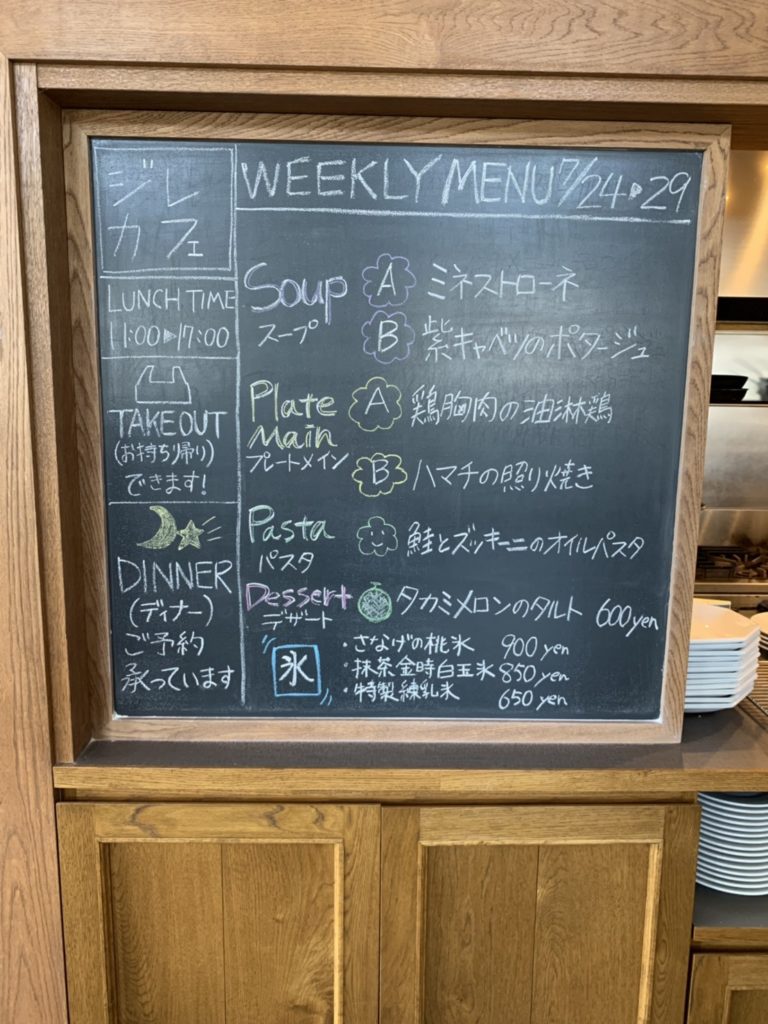 ジレ
カフェ
LUNCH TIME
11:00▶17:00
TAKEOUT
(お持ち帰り)
できます!
DINNER
(ディナー)
ご予約
承っています
WEEKLY MENU 7/24▶29
Soup
スープ
A ミネストローネ
B 紫キャベツのポタージュ
Plate
Main
プレートメイン
A 鶏胸肉の油淋鶏
B ハマチの照り焼き
Pasta
パスタ
鮭とズッキーニのオイルパスタ
Dessert
デザート
タカミメロンのタルト 600yen
氷
・さなげの桃氷 900yen
・抹茶金時白玉氷 850yen
・特製練乳氷 650yen